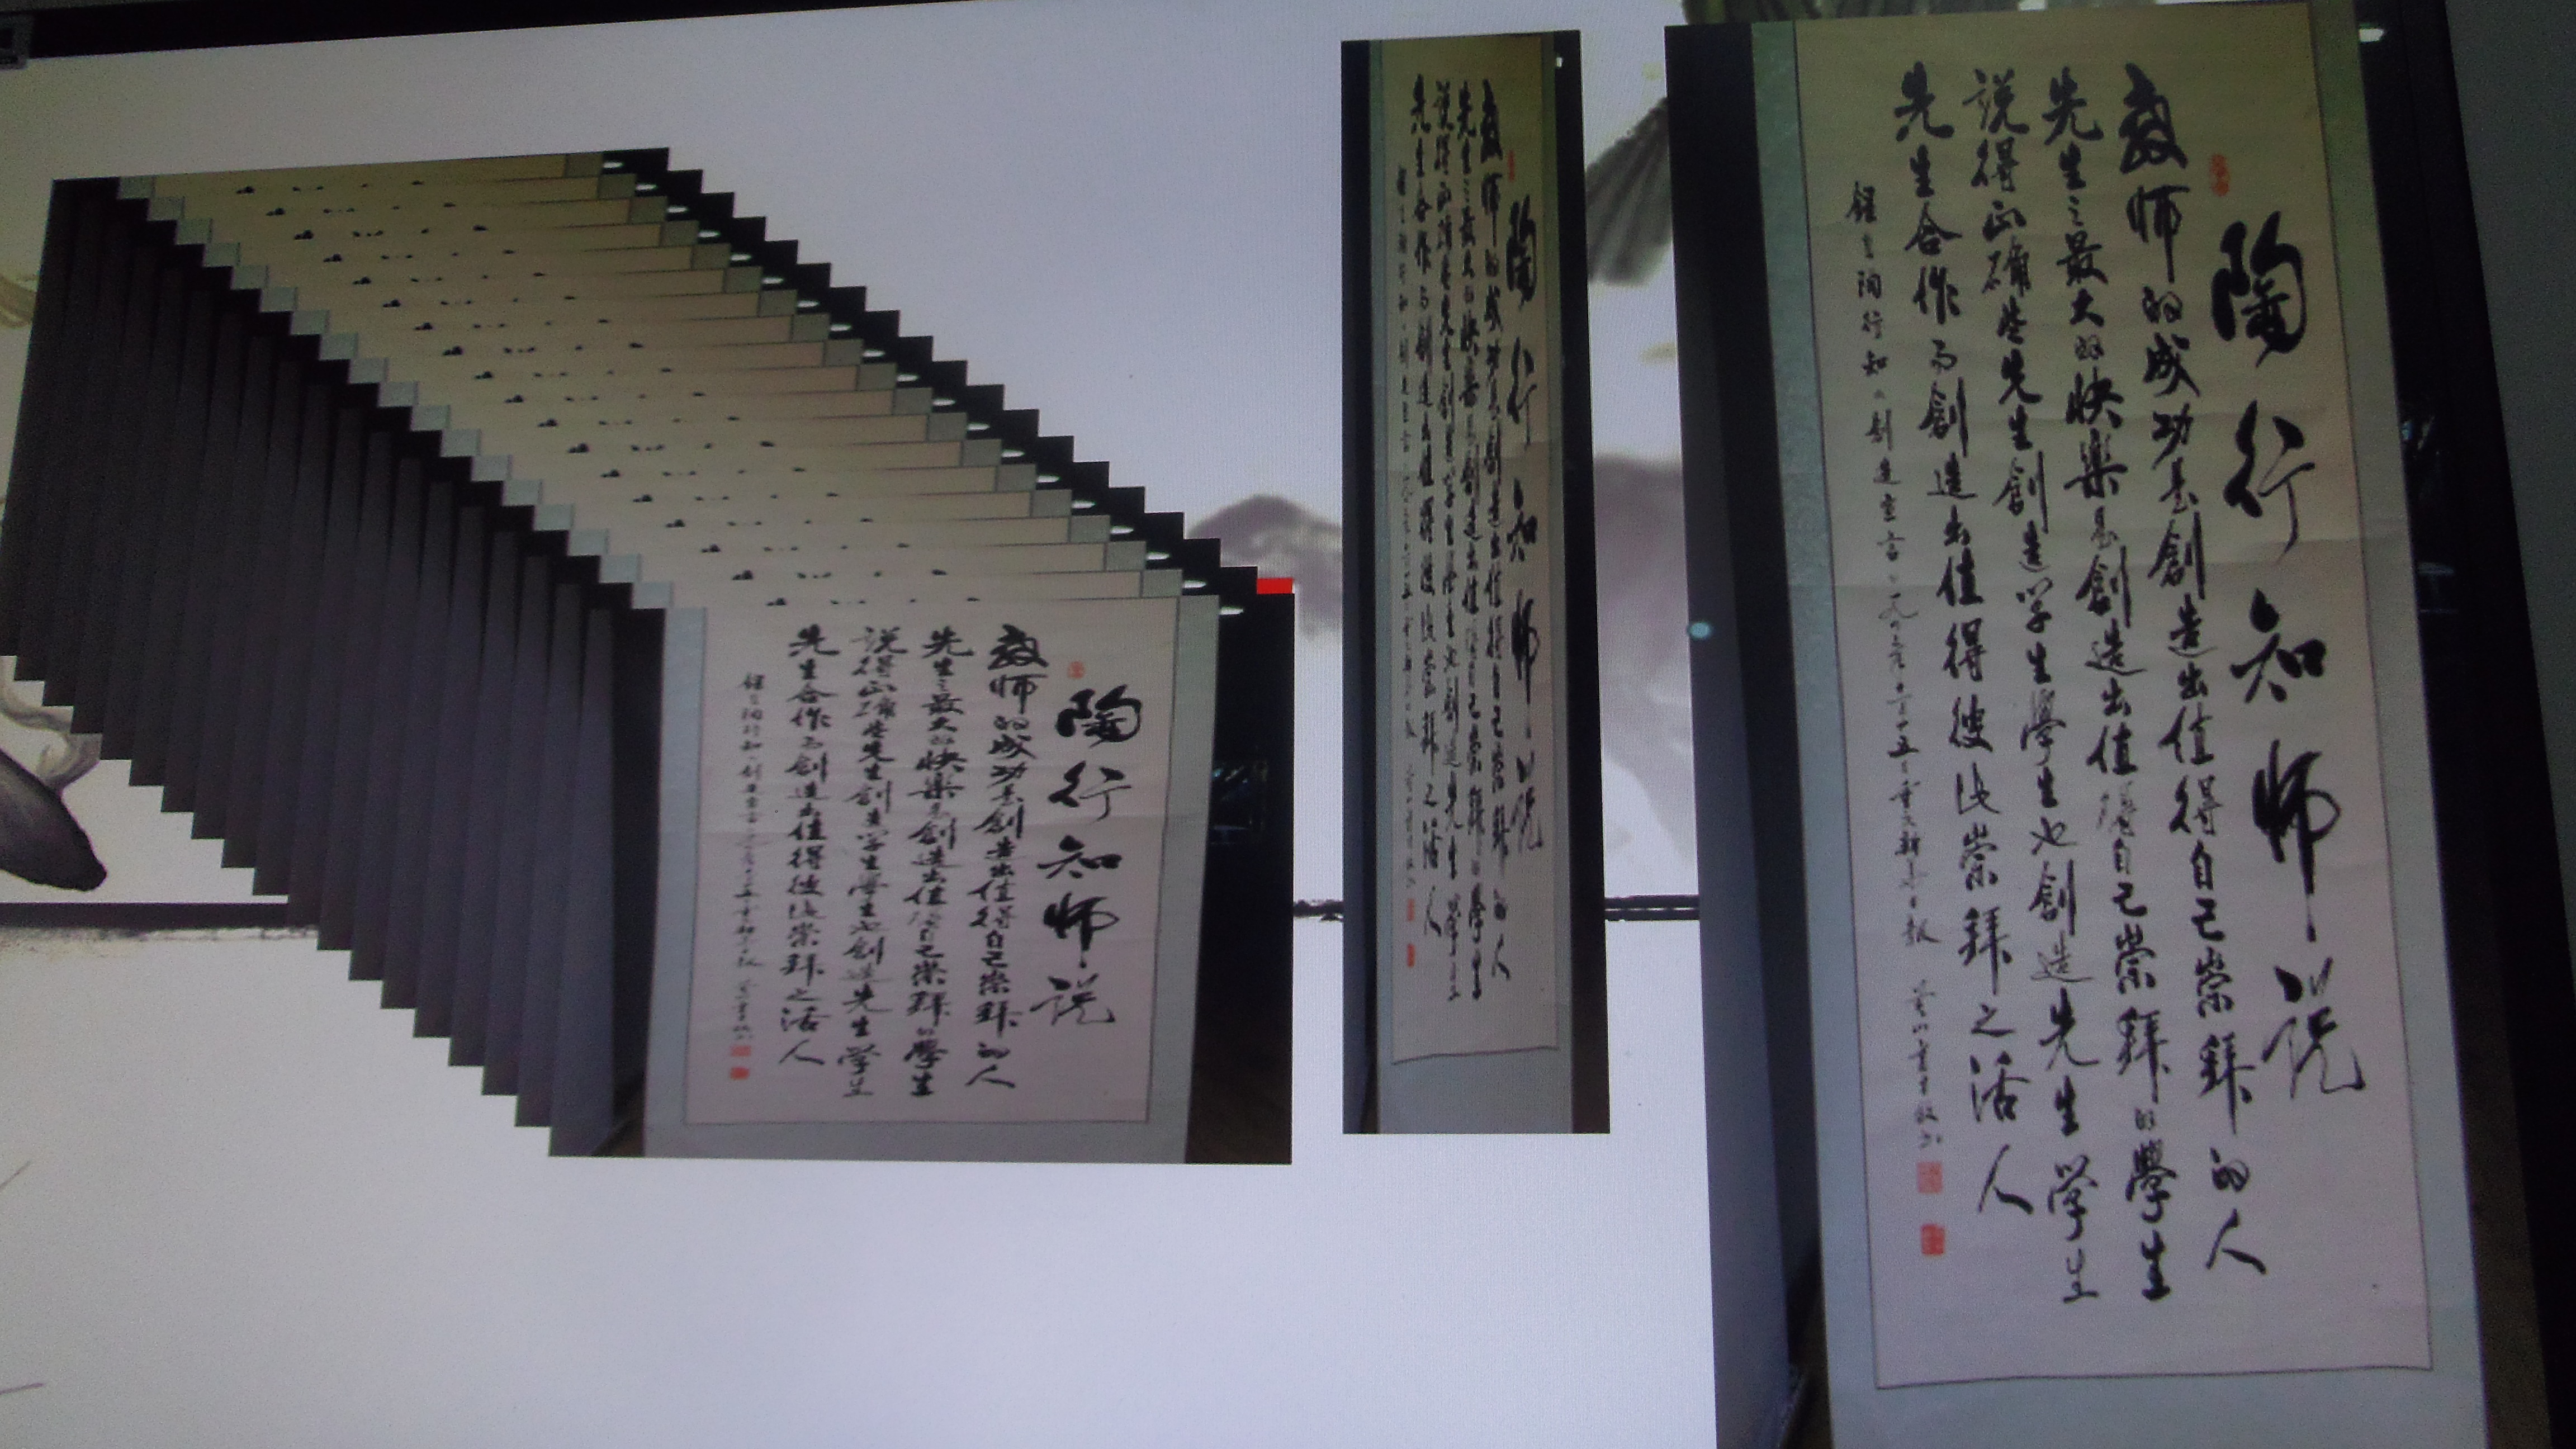 陶行知师说
教师的成功是創造出值得自己崇拜的人
先生之最大的快樂是創造出值得自己崇拜的學生
説得正確些先生創造学生學生也創造先生学生
先生合作而創造出值得彼此崇拜之活人
陶行知師说
教师的成功是創造出值得自己崇拜的人
先生之最大的快樂是創造出值得自己崇拜的學生
説得正確些先生創造学生學生也創造先生学生
先生合作而創造出值得彼此崇拜之活人
陶行知师说
教师的成功是創造出值得自己崇拜的人
先生之最大的快樂是創造出值得自己崇拜的學生
説得正確些先生創造学生學生也創造先生学生
先生合作而創造出值得彼此崇拜之活人
錄自陶行知《創造宣言》